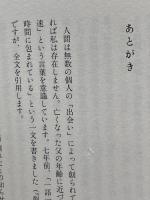 あとがき
人間は無数の個人の「出会い」によって創られて
れば私は存在しません。亡くなった父の年齢に近づ
速」という言葉を意識しています。七年前、「一話
時間に包まれている」という一文を書きました
ですが、全文を引用します。